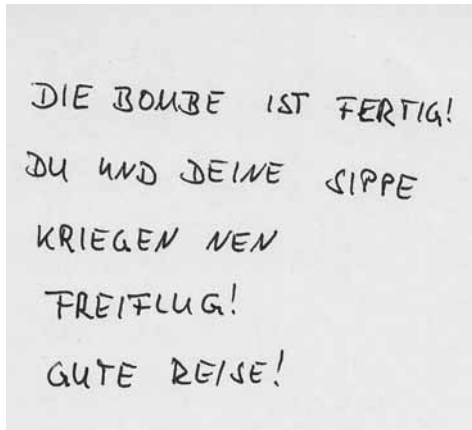 DIE BOMBE IST FERTIG!
DU UND DEINE SIPPE
KRIEGEN NEN
FREIFLUG!
GUTE REISE!